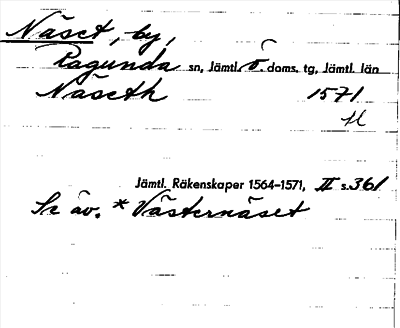 Näset, by,
Ragunda sn, Jämtl. ö. doms. tg, Jämtl. län
Näseth 1571
Jämtl. Räkenskaper 1564–1571, II s. 361
Se äv. * Västernäset